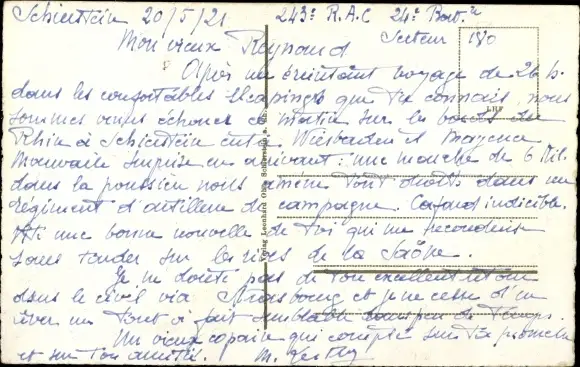 Schierstein 20/5/21 243e R.A.C 24e Batt.ie
Secteur 180
Mon vieux Reynaud
Après un éreintant voyage de 26 h.
dans les confortables que tu connais, nous
sommes venus échouer ce matin sur les bords du
Rhin à Schierstein entre Wiesbaden et Mayence
Mauvaise surprise en arrivant : une marche de 6 Kil.
dans la poussière nous amène tout droit dans un
régiment d'artillerie de campagne. Cafard indicible.
une bonne nouvelle de toi qui me
sans tarder sur les rives de la Saône.
Je ne doute pas de ton excellent retour
dans le civil via Strasbourg et je ne cesse d'en
rêver un tout à fait semblable dans peu de temps.
Un vieux copain qui compte sur ta promesse
et sur ton amitié. M.
Verlag Leonhard Schierstein a. Rh.